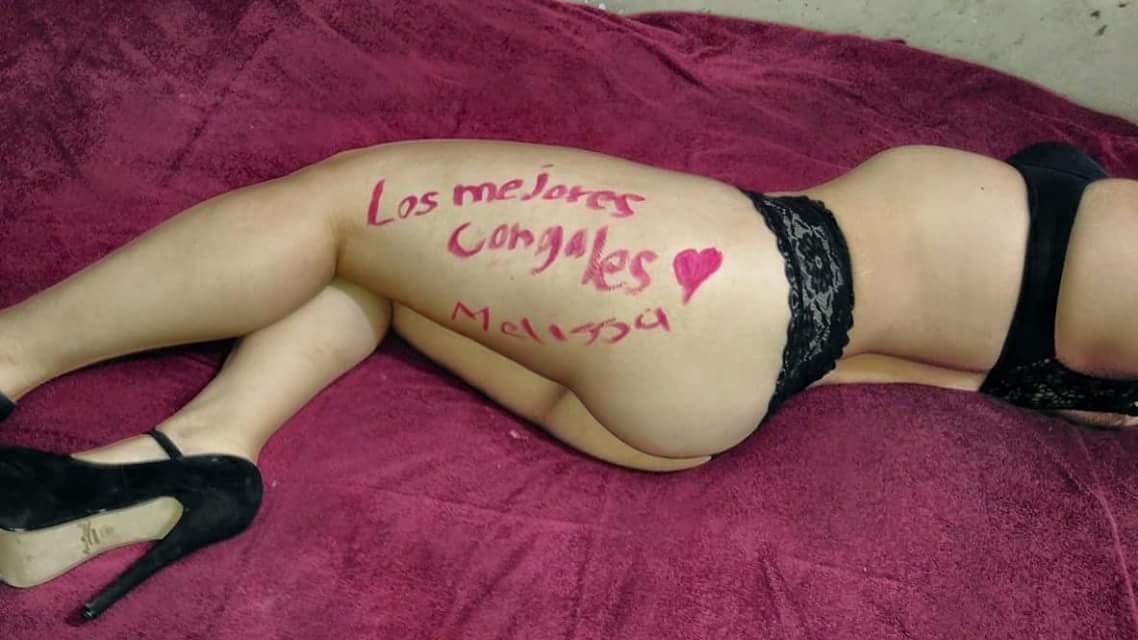 Los mejores
Congales
Melissa